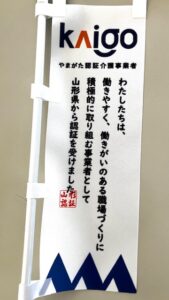 kaigo
やまがた認証介護事業者
わたしたちは、
働きやすく、働きがいのある職場づくりに
積極的に取り組む事業者として
山形県から認証を受けました